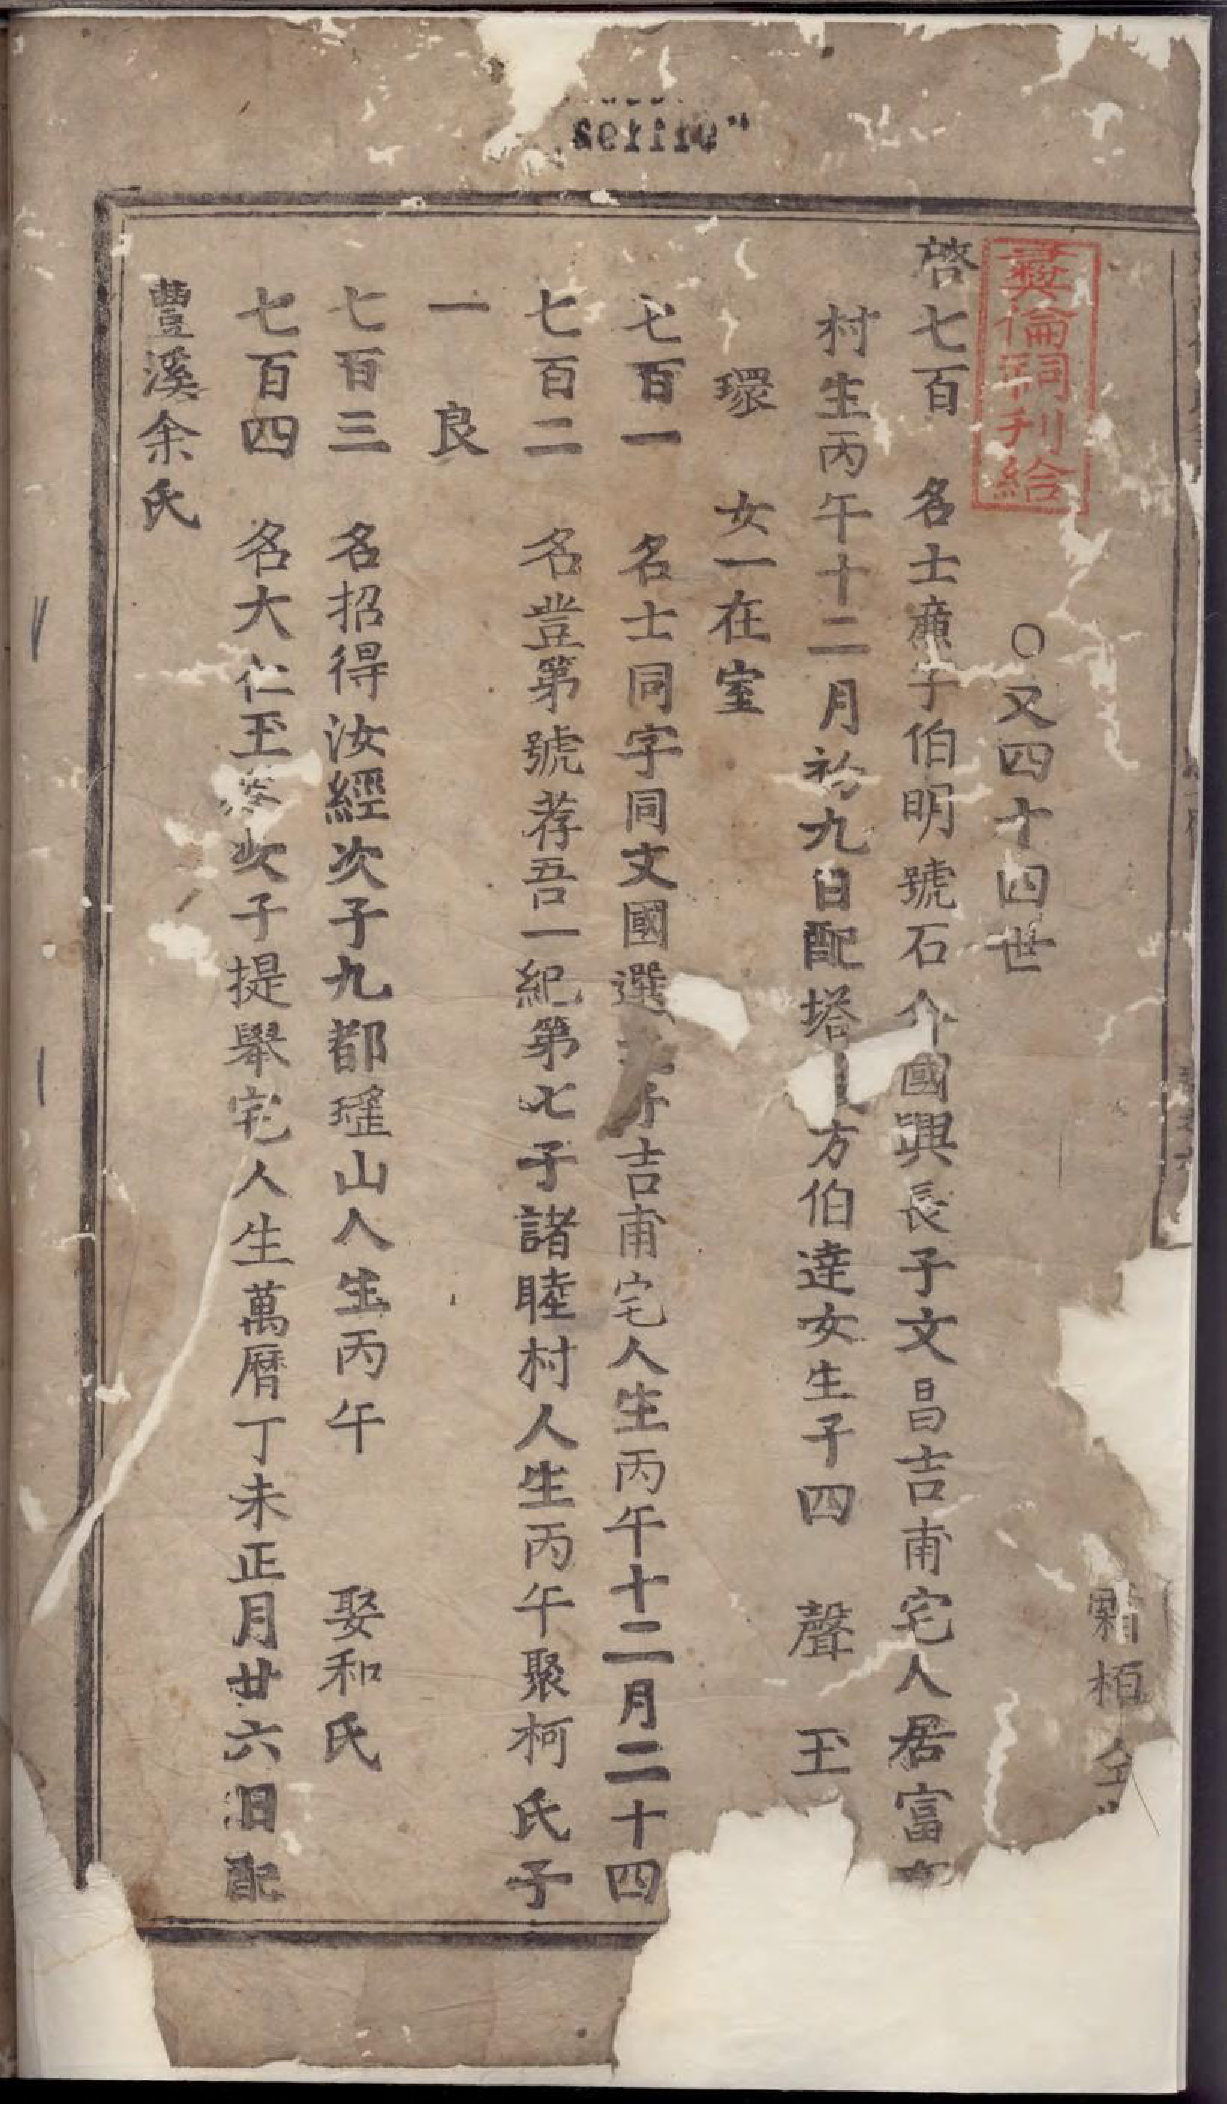 彝倫祠刊給
○又四十四世
啓七百 名士應子伯明號石介國興長子文昌吉甫宅人居富
村生丙午十二月初九日配塔方伯達女生子四 聲 玉
環 女一在室
七百一 名士同字同文國選子吉甫宅人生丙午十二月二十四
七百二 名豈第號荐吾一紀第七子諸睦村人生丙午聚柯氏子
一 良
七百三 名招得汝經次子九都瑤山人生丙午 娶和氏
七百四 名大仁玉次子提舉宅人生萬曆丁未正月廿六日配
豐溪余氏